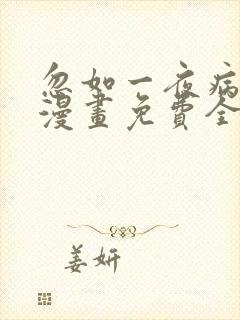 忽如一夜病
漫畫免費全
姜妍